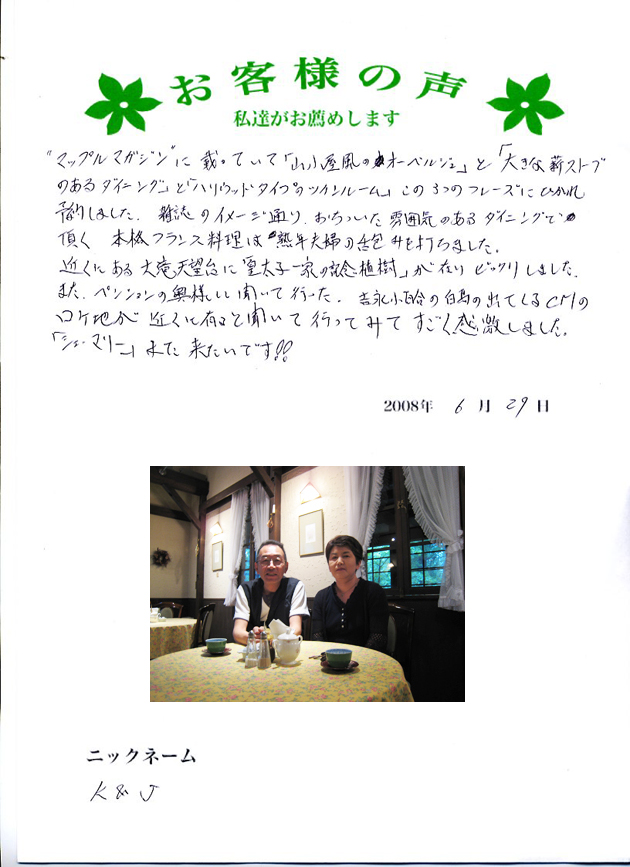 お客様の声
私達がお薦めします
"マップルマガジン"に載っていて「山小屋風のオーベルジュ」と「大きな薪ストーブ
のあるダイニング」と「ハリウッドタイプのツインルーム」この3つのフレーズにひかれ
予約しました。雑誌のイメージ通り、おちついた雰囲気のあるダイニングで
頂く 本格フランス料理は熟年夫婦の舌包みを打ちました。
近くにある大滝天望台に「皇太子一家の記念植樹」が在り ビックリしました。
また、ペンションの奥様に聞いて行った、吉永小百合の白鳥の出てくるCMの
ロケ地が近くに有ると聞いて行ってみて すごく感激しました。
「シェ・マリー」また来たいです!!
2008年 6月 29日
ニックネーム
K & J